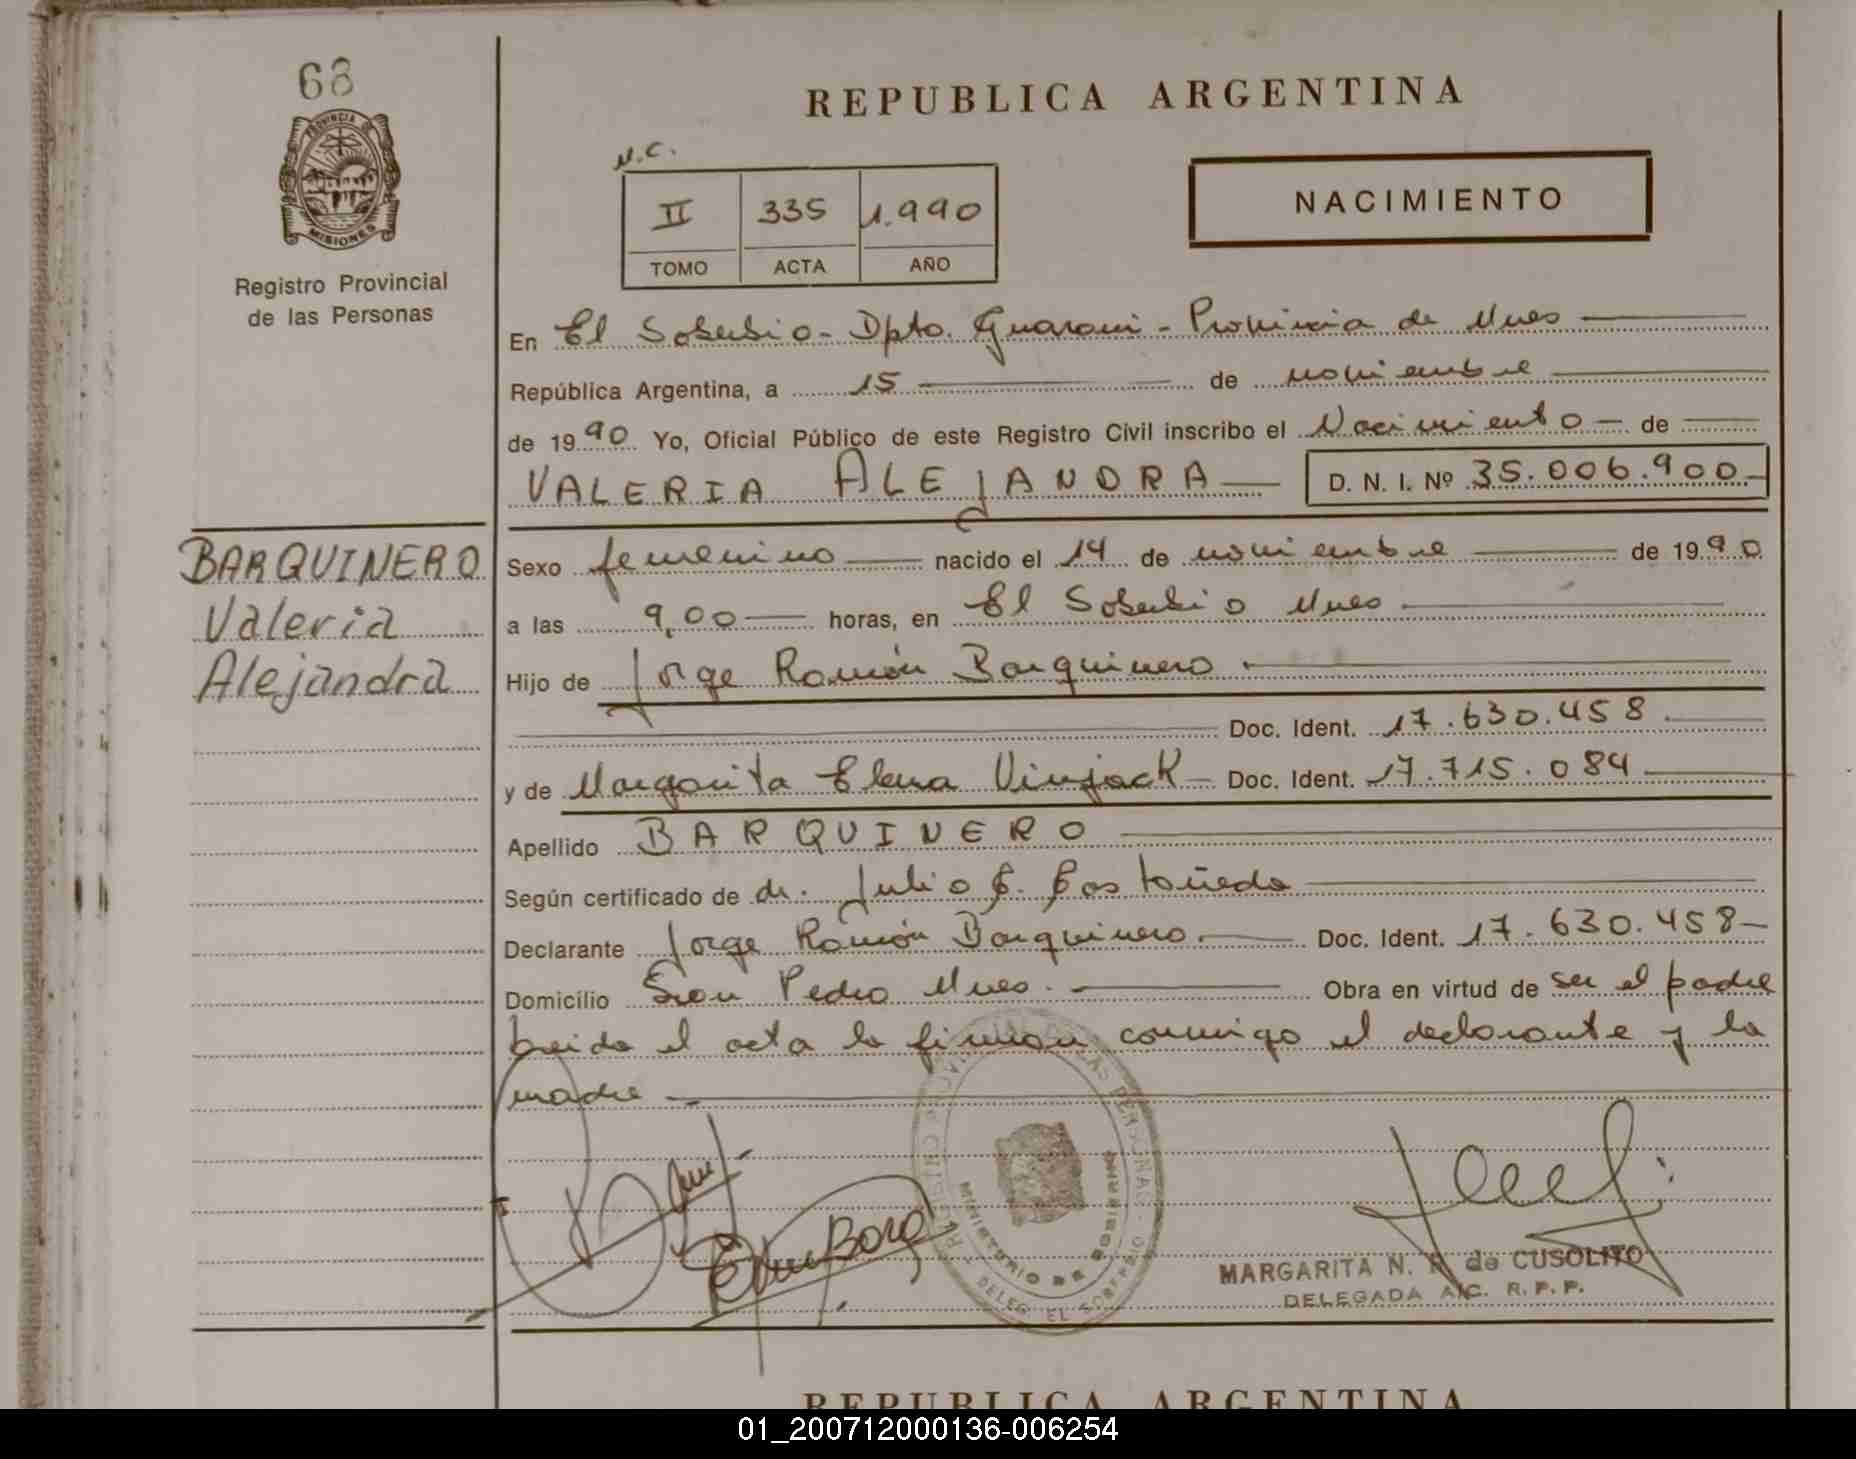 68
PROVINCIA DE
MISIONES
Registro Provincial
de las Personas
REPUBLICA ARGENTINA
N.C.
II 335 1.990
TOMO ACTA AÑO
NACIMIENTO
En El Soberbio - Dpto. Guarani - Provincia de Mnes
República Argentina, a 15 de noviembre
de 1990 Yo, Oficial Público de este Registro Civil inscribo el Nacimiento de
VALERIA ALEJANDRA D. N. I. Nº 35.006.900
BARQUINERO
Valeria
Alejandra
Sexo femenino nacido el 14 de noviembre de 1990
a las 9,00 horas, en El Soberbio Mnes
Hijo de Jorge Ramón Barquinero
Doc. Ident. 17.630.458
y de Margarita Elena Vinjack Doc. Ident. 17.715.084
Apellido BARQUINERO
Según certificado de dr. Julio C. Castañeda
Declarante Jorge Ramón Barquinero Doc. Ident. 17.630.458
Domicilio San Pedro Mnes. Obra en virtud de ser el padre
Leida el acta la firman conmigo el declarante y la
madre
MINISTERIO DE GOBIERNO
DELEG. EL SOBERBIO
MARGARITA N. R. de CUSOLITO
DELEGADA A/C. R. P. P.
REPUBLICA ARGENTINA
01_200712000136-006254